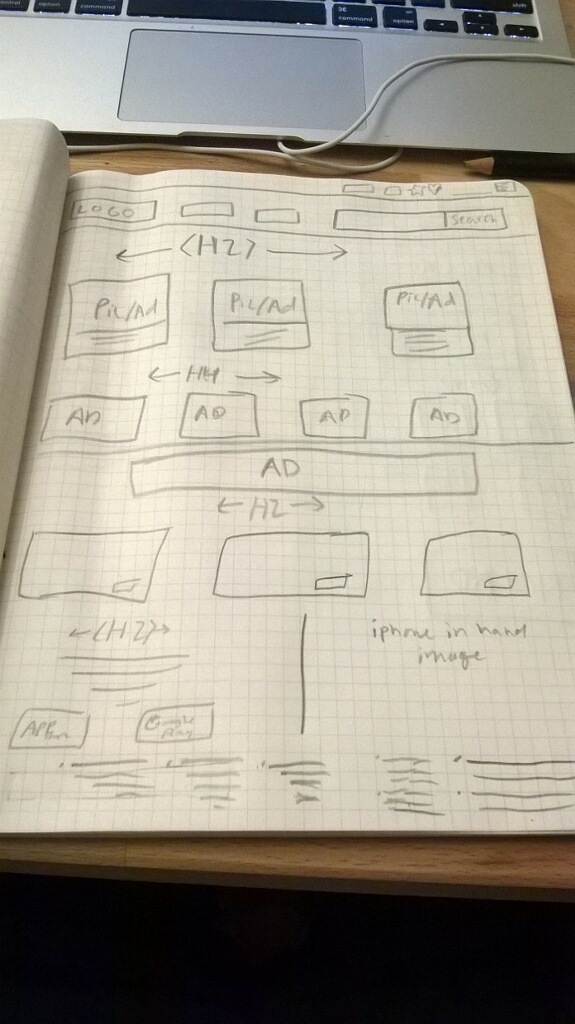 control option command
⌘ command option
shift
LOGO Search
<H2>
Pic/Ad Pic/Ad Pic/Ad
H4
AD AD AD AD
AD
H2
<H2>
iphone in hand
image
APP
Google
Play